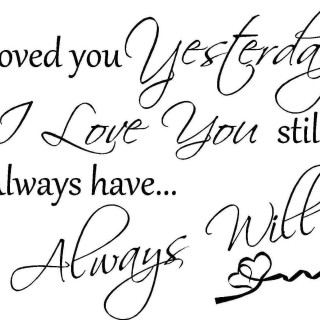 oved you Yesterda
I Love You stil
lways have...
Always Will